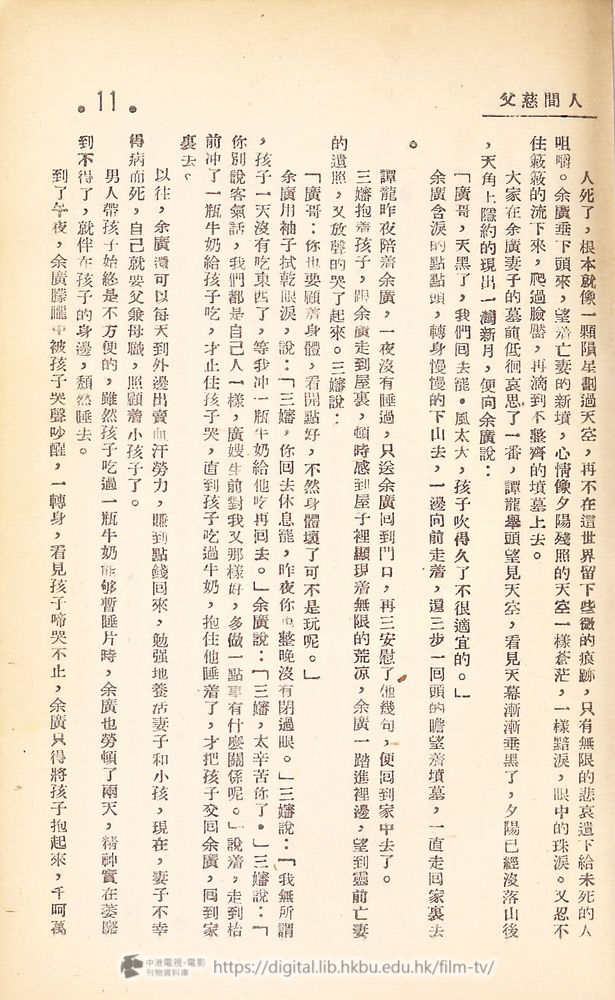 人間慈父
·11·
人死了，根本就像一顆隕星劃過天空，再不在這世界留下些微的痕跡，只有無限的悲哀遺下給未死的人
咀嚼。余廣垂下頭來，望着亡妻的新墳，心情像夕陽殘照的天空一樣蒼茫，一樣黯淚，眼中的珠淚。又忍不
住簌簌的流下來，爬過臉龎，再滴到不整齊的墳墓上去。
大家在余廣妻子的墓前低徊哀思了一番，譚龍舉頭望見天空，看見天幕漸漸垂黑了，夕陽已經沒落山後
，天角上隱約的現出一灣新月，便向余廣說：
「廣哥，天黑了，我們回去罷。風太大，孩子吹得久了不很適宜的。」
余廣含淚的點點頭，轉身慢慢的下山去，一邊向前走着，還三步一回頭的瞻望着墳墓，一直走回家裏去
。
譚龍昨夜陪着余廣，一夜沒有睡過，只送余廣回到門口，再三安慰了他幾句，便回到家中去了。
三嬸抱着孩子，跟余廣走到屋裏，頓時感到屋子裡顯現着無限的荒凉，余廣一踏進裡邊，望到靈前亡妻
的遺照，又放聲的哭了起來。三嬸說：
「廣哥：你也要顧着身體，看開點好，不然身體壞了可不是玩呢。」
余廣用袖子拭乾眼淚，說：「三嬸，你回去休息罷，昨夜你也整晚沒有閉過眼。」三嬸說：「我無所謂
，孩子一天沒有吃東西了，等我冲一瓶牛奶給他吃再回去。」余廣說：「三嬸，太辛苦你了。」三嬸說：「
你別說客氣話，我們都是自己人一樣，廣嫂生前對我又那樣好，多做一點事有什麼關係呢。」說着，走到枱
前冲了一瓶牛奶給孩子吃，才止住孩子哭，直到孩子吃過牛奶，抱住他睡着了，才把孩子交回余廣，回到家
裏去。
以往，余廣還可以每天到外邊出賣血汗勞力，賺到點錢回來，勉强地養活妻子和小孩，現在，妻子不幸
得病而死，自己就要父兼母職，照顧着小孩子了。
男人帶孩子始終是不方便的，雖然孩子吃過一瓶牛奶能够暫睡片時，余廣也勞頓了兩天，精神實在萎靡
到不得了，就伴在孩子的身邊，頹然睡去。
到了午夜，余廣朦朧中被孩子哭聲吵醒，一轉身，看見孩子啼哭不止，余廣只得將孩子抱起來，千呵萬
中港電視·電影
刊物資料庫
https://digital.lib.hkbu.edu.hk/film-tv/